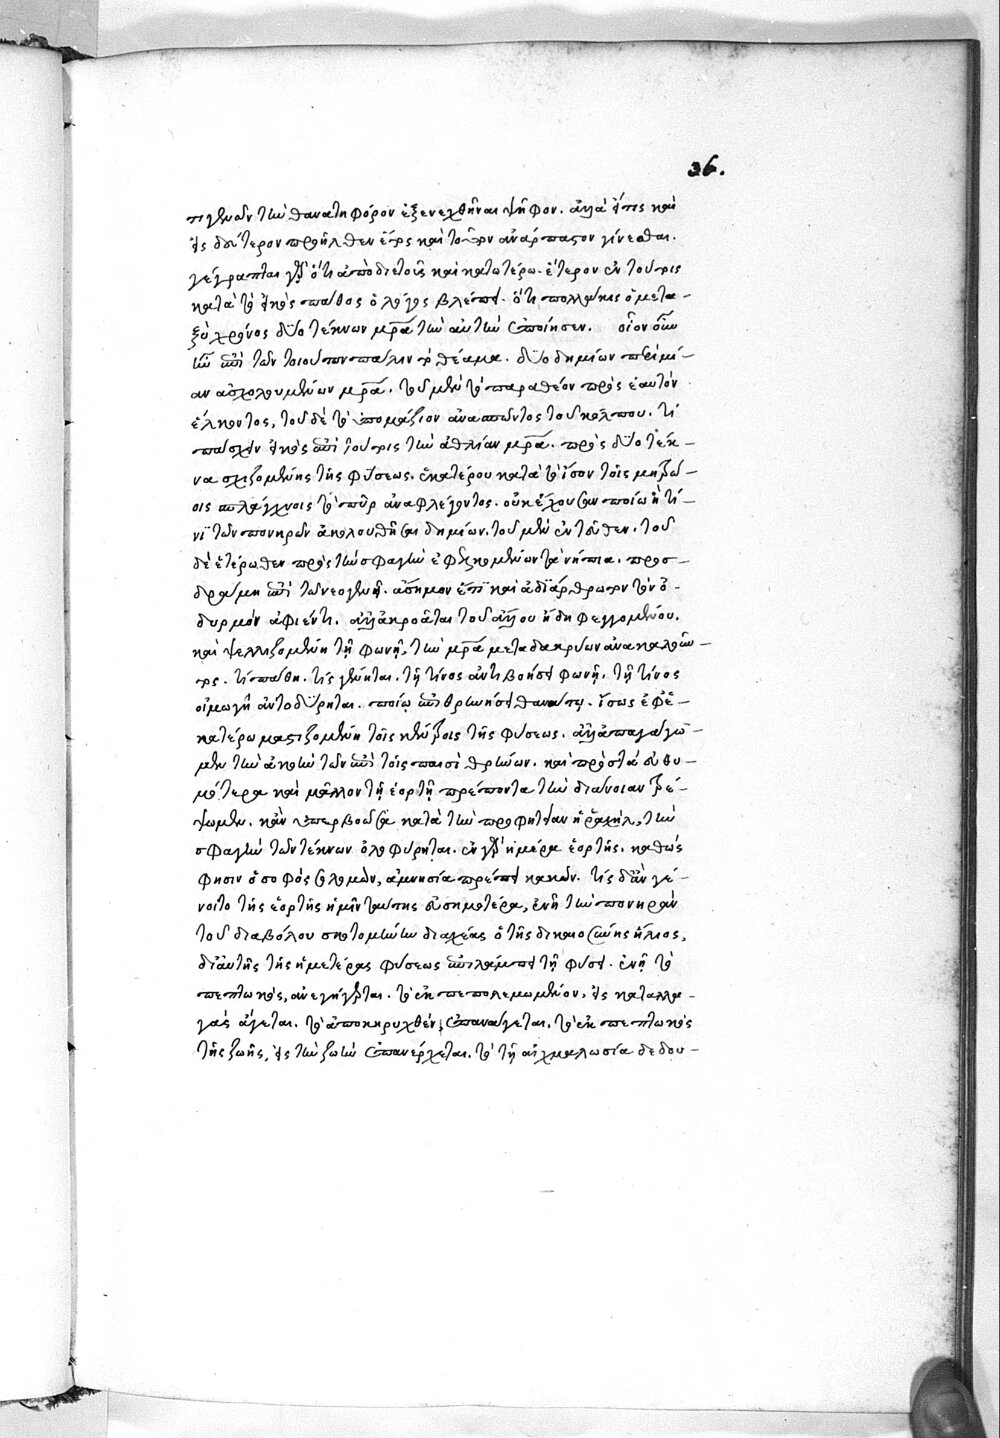 36.
πιγενῶν τὴν θανατηφόρον ἐξενεχθῆναι ψῆφον. ἀλλὰ τίς καὶ
εἰς δεύτερον προῆλθεν ἔτος καὶ τοῦτον ἀνάρπαστον γίνεσθαι.
γέγραπται γὰρ ὅτι ἀπὸ διετοῦς καὶ κατωτέρω. ἕτερον ἐν τούτοις
κατὰ τὸ εἰκὸς πάθος ὁ λόγος βλέπει. ὅτι πολλάκις ὁ μετα-
ξὺ χρόνος δύο τέκνων μρα τὴν αὐτὴν ἐποίησεν. οἷον οὖν
ἦν ἐπὶ τῶν τοιούτων πάλιν τὸ θέαμα. δύο δημίων περὶ μί-
αν ἀσχολουμένων μρα. τοῦ μὲν τὸ παραθέον πρὸς ἑαυτὸν
ἕλκοντος, τοῦ δὲ τὸ ὑπομάζιον ἀνασπῶντος τοῦ κόλπου. τί
πάσχειν εἰκὸς ἐπὶ τούτοις τὴν ἀθλίαν μρα. πρὸς δύο τέκ-
να σχιζομένης τῆς φύσεως. ἑκατέρου κατὰ τὸ ἴσον τοῖς μητρώ-
οις σπλάγχνοις τὸ πῦρ ἀναφλέγοντος. οὐκ ἔχουσαν ποίῳ ἢ τί-
νι τῶν πονηρῶν ἀκολουθῆσαι δημίων. τοῦ μὲν ἐντεῦθεν. τοῦ
δὲ ἑτέρωθεν πρὸς τὴν σφαγὴν ἐφελκομένων τὰ νήπια. προσ-
δράμῃ ἐπὶ τῶ νεογενῆ. ἄσημον ἔτι καὶ ἀδιάρθρωτον τὸν ὀ-
δυρμὸν ἀφιέντι. ἀλλ' ἀκροᾶται τοῦ ἄλλου ἤδη φεγγομένου.
καὶ ψελλιζομένῃ τῇ φωνῇ, τὴν μρα μετὰ δακρύων ἀνακαλοῦν-
τος. τί πάθῃ. τίς γένηται. τῇ τίνος ἀντιβοήσει φωνῇ. τῇ τίνος
οἰμωγῇ ἀντοδύρηται. ποίῳ ἐπιθρηνήσει θανάτῳ. ἴσως ἐφ' ἑ-
κατέρῳ μαστιζομένη τοῖς κέντροις τῆς φύσεως. ἀλλ' ἀπαγάγω-
μεν τὴν ἀκοὴν τῶν ἐπὶ τοῖς παισὶ θρήνων. καὶ πρὸς τὰ εὐθυ-
μότερα καὶ μᾶλλον τῇ ἑορτῇ πρέποντα τὴν διάνοιαν τρέ-
ψωμεν. κἂν ὑπερβοῶσα κατὰ τὴν προφητείαν ἡ ῥαχὴλ, τὴν
σφαγὴν τῶν τέκνων ὀλοφύρηται. ἐν γὰρ ἡμέρα ἑορτῆς. καθώς
φησιν ὁ σοφὸς σολομὼν, ἀμνησία πρέπει κακῶν. τίς δ' ἂν γέ-
νοιτο τῆς ἑορτῆς ἡμῖν ταύτης εὐσημοτέρα, ἐν ᾗ τὴν πονηρὰν
τοῦ διαβόλου σκοτομήνην διαχέας ὁ τῆς δικαιοσύνης ἥλιος,
δι' αὐτῆς τῆς ἡμετέρας φύσεως ἐπιλάμπει τῇ φύσει. ἐν ᾗ τὸ
πεπτωκὸς, ἀνεγήγερται. τὸ ἐκπεπολεμωμένον, εἰς καταλλα-
γὰς ἄγεται. τὸ ἀποκηρυχθέν, ἐπανάγεται. τὸ ἐκπεπτωκὸς
τῆς ζωῆς, εἰς τὴν ζωὴν ἐπανέρχεται. τὸ τῇ αἰχμαλωσία δεδου-